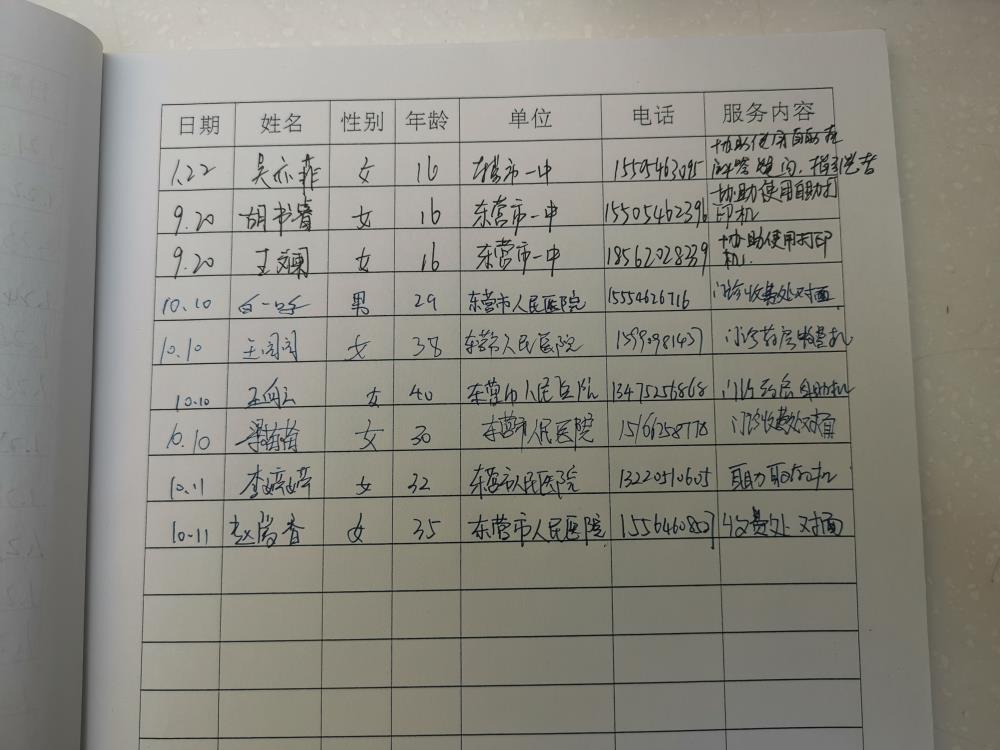 日期 姓名 性别 年龄 单位 电话 服务内容
1.22 吴亦菲 女 16 东营市一中 15505463095 协助使用自助机 解答疑问，指引患者
9.20 胡书睿 女 16 东营市一中 15505462396 协助使用自助打印机
9.20 王文澜 女 16 东营市一中 18562028339 协助使用打印机.
10.10 男 29 东营市人民医院 15554626716 门诊收费处对面
10.10 王闪闪 女 38 东营市人民医院 15990981437 门诊药房收费机
10.10 女 40 东营市人民医院 13475256868 门诊药房自助机
10.10 梁苗苗 女 30 东营市人民医院 15166258778 门诊收费处对面
10.11 李婷婷 女 32 东营市人民医院 13220510605 自助取存机
10-11 赵尚香 女 35 东营市人民医院 15564608507 收费处对面